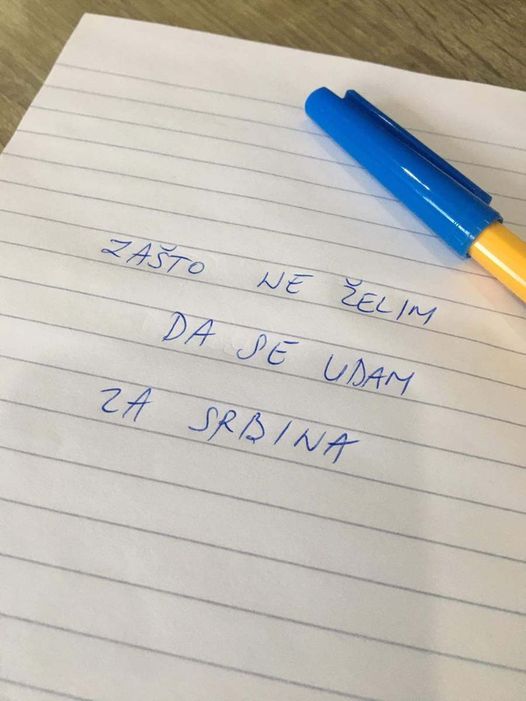 ZAŠTO NE ŽELIM
DA SE UDAM
ZA SRBINA